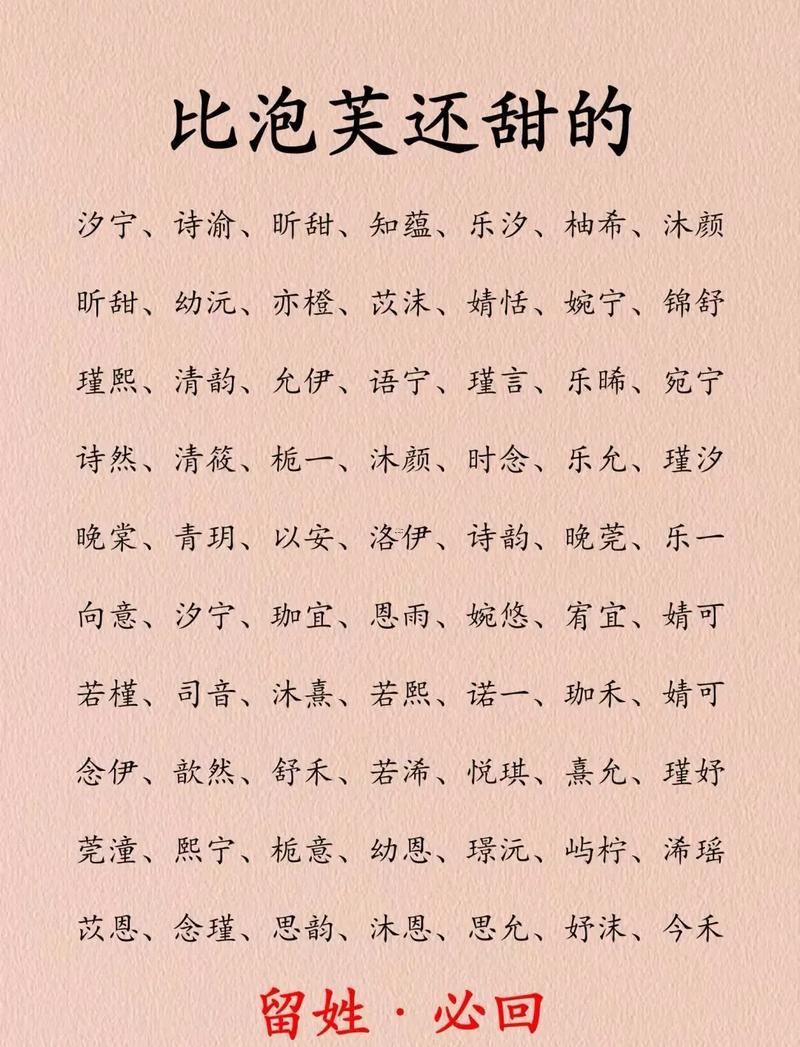 比泡芙还甜的
汐宁、诗渝、昕甜、知蕴、乐汐、柚希、沐颜
昕甜、幼沅、亦橙、苡沫、婧恬、婉宁、锦舒
瑾熙、清韵、允伊、语宁、瑾言、乐晞、宛宁
诗然、清筱、栀一、沐颜、时念、乐允、瑾汐
晚棠、青玥、以安、洛伊、诗韵、晚莞、乐一
向意、汐宁、珈宜、恩雨、婉悠、宥宜、婧可
若槿、司音、沐熹、若熙、诺一、珈禾、婧可
念伊、歆然、舒禾、若浠、悦琪、熹允、瑾妤
莞潼、熙宁、栀意、幼恩、璟沅、屿柠、浠瑶
苡恩、念瑾、思韵、沐恩、思允、妤沫、今禾
留姓·必回